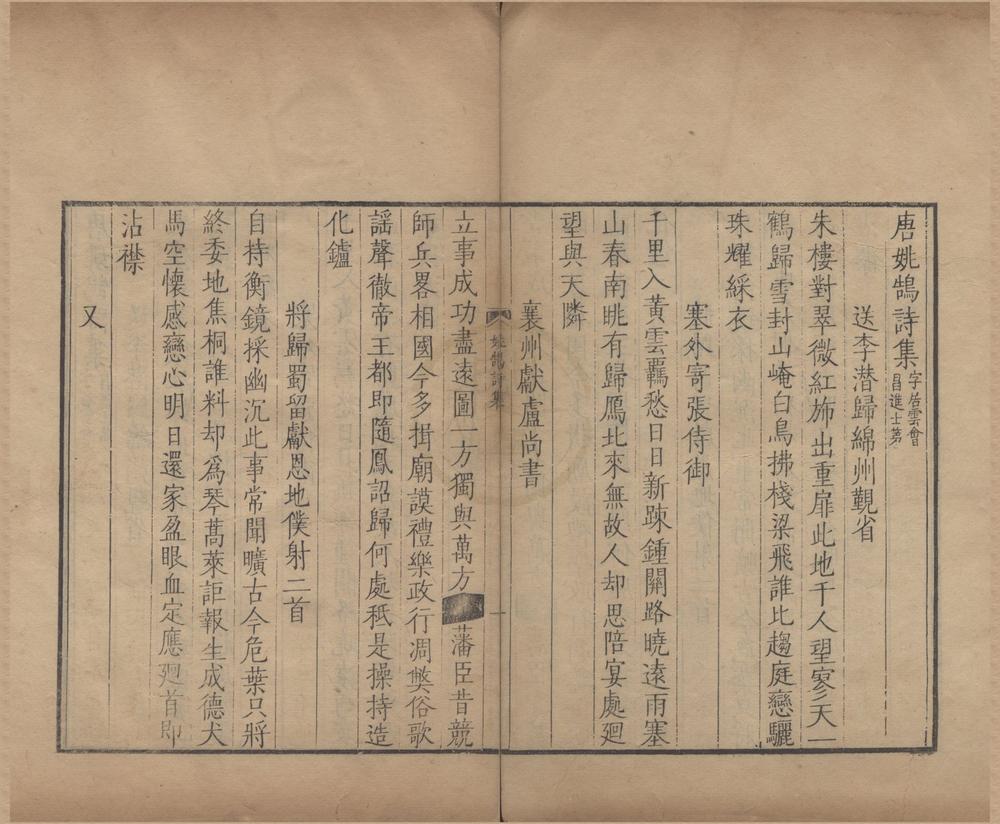 唐姚鵠詩集字居雲會昌進士苐
送李潛歸綿州覲省
朱樓對翠微紅斾出重扉此地千人望寥天一
鶴歸雪封山崦白鳥拂棧梁飛誰比趨庭戀驪
珠耀綵衣
塞外寄張侍御
千里入黃雲羈愁日日新踈鍾關路曉遠雨塞
山春南眺有歸鴈北來無故人却思陪宴處迴
望與天隣
襄州獻盧尚書
姚鵠詩集
一
立事成功盡遠圖一方獨與萬方藩臣昔競
師兵畧相國今多揖廟謨禮樂政行凋獘俗歌
謡聲徹帝王都即隨鳳詔歸何處秪是操持造
化鑪
將歸蜀留獻恩地僕射二首
自持衡鏡採幽沉此事常聞曠古今危葉只將
終委地焦桐誰料却爲琴蒿萊詎報生成德犬
馬空懷感戀心明日還家盈眼血定應廻首即
沾襟
又